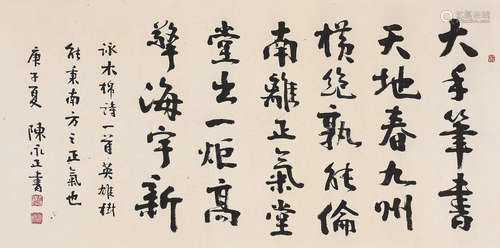 大手筆書
天地春九州
橫絶孰能倫
南離正氣堂
堂出一炬高
擎海宇新
詠木棉詩一首英雄樹
能秉南方之正氣也
庚子夏 陳永正書